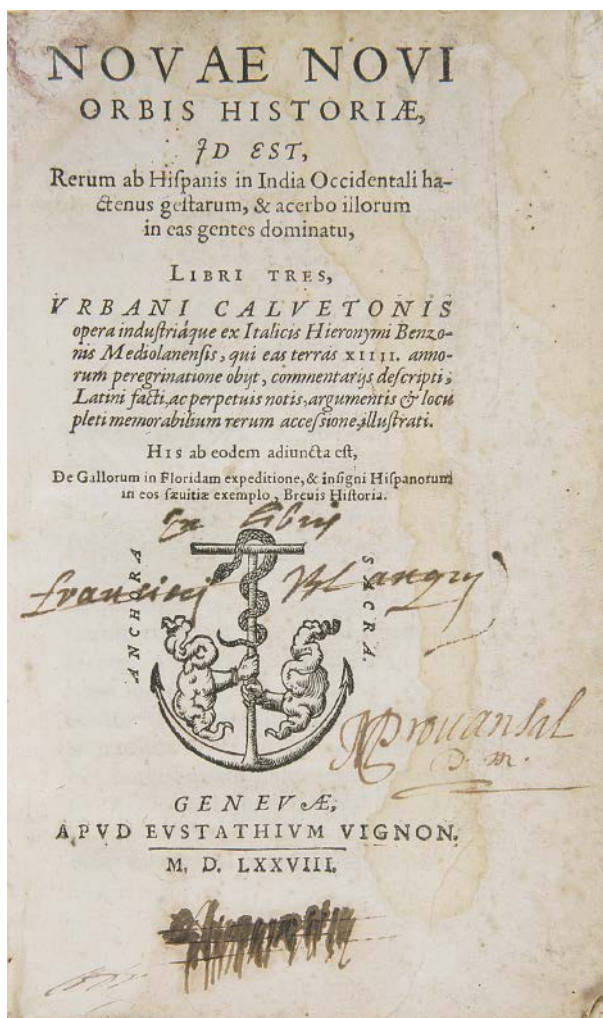 NOVAE NOVI
ORBIS HISTORIÆ,
ID EST,
Rerum ab Hiſpanis in India Occidentali ha-
ctenus geſtarum, & acerbo illorum
in eas gentes dominatu,
LIBRI TRES,
VRBANI CALVETONIS
opera induſtriáque ex Italicis Hieronymi Benzo-
nis Mediolanenſis, qui eas terras XIIII. anno-
rum peregrinatione obijt, commentarijs deſcripti,
Latini facti, ac perpetuis notis, argumentis & locu
pleti memorabilium rerum acceſsione, illuſtrati.
HIS ab eodem adiuncta eſt,
De Gallorum in Floridam expeditione, & inſigni Hiſpanorum
in eos ſæuitiæ exemplo, Breuis Hiſtoria.
Ex libris
francisci
ANCHORA
SACRA.
Prouansal
D. m.
GENEVÆ,
APVD EVSTATHIVM VIGNON.
M. D. LXXVIII.